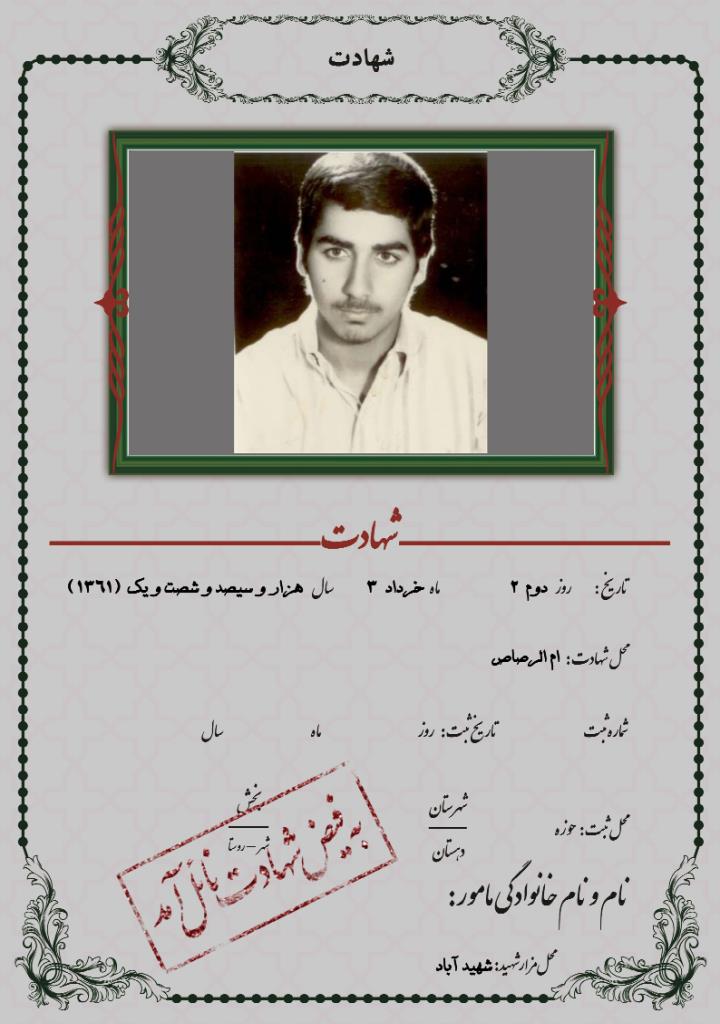 شهادت
شهادت
تاریخ: روز دوم ۲ ماه خرداد ۳ سال هزار و سیصد و شصت و یک (۱۳۶۱)
محل شهادت: ام الرصاص
شماره ثبت تاریخ ثبت: روز ماه سال
محل ثبت: حوزه شهرستان بخش
دهستان شهر - روستا
به فیض شهادت نائل آمد
نام و نام خانوادگی مامور:
محل مزار شهید: شهید آباد